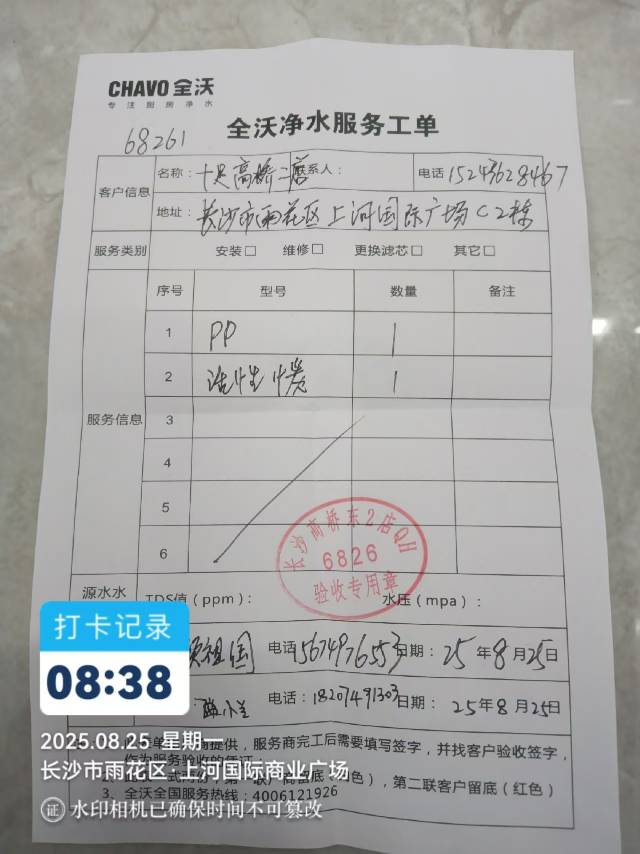 CHAVO 全沃
专注厨房净水
68261
全沃净水服务工单
客户信息
名称：十足高桥二店 联系人：
电话 15243628467
地址：长沙市雨花区上河国际广场C2栋
服务类别 安装□ 维修□ 更换滤芯□ 其它□
服务信息
序号 型号 数量 备注
1 PP 1
2 活性炭 1
3
4
5
6
长沙高桥东2店QH
6826
验收专用章
源水水
TDS值（ppm）： 水压（mpa）：
祖国 电话 15674976553 日期：25年8月25日
电话：18207491303 日期：25年8月25日
提供，服务商完工后需要填写签字，并找客户验收签字，
作为服务验收的凭证；
第二联客户留底（红色）
3、全沃全国服务热线：4006121926
打卡记录
08:38
2025.08.25 星期一
长沙市雨花区·上河国际商业广场
证 水印相机已确保时间不可篡改